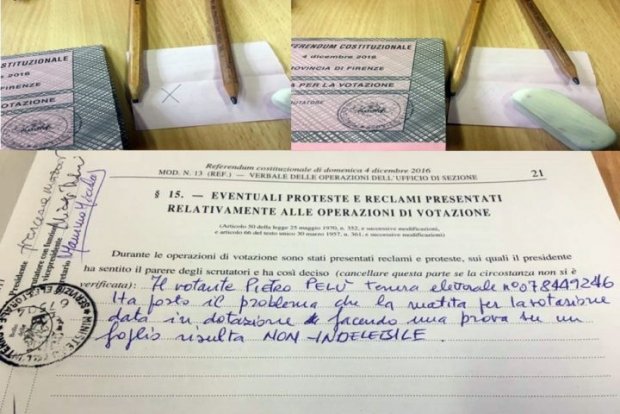 FERENDUM COSTITUZIONALE
4 dicembre 2016
ROVINCIA DI FIRENZE
VOTAZIONE
REFERENDUM COSTITUZIONALE
4 dicembre 2016
PROVINCIA DI FIRENZE
A PER LA VOTAZIONE
Referendum costituzionale di domenica 4 dicembre 2016
MOD. N. 13 (REF.) — VERBALE DELLE OPERAZIONI DELL'UFFICIO DI SEZIONE
21
§ 15. — EVENTUALI PROTESTE E RECLAMI PRESENTATI
RELATIVAMENTE ALLE OPERAZIONI DI VOTAZIONE
(Articolo 50 della legge 25 maggio 1970, n. 352, e successive modificazioni,
e articolo 66 del testo unico 30 marzo 1957, n. 361, e successive modificazioni)
Durante le operazioni di votazione sono stati presentati reclami e proteste, sui quali il presidente
ha sentito il parere degli scrutatori e ha così deciso (cancellare questa parte se la circostanza non si è
verificata): Il votante PIETRO PELÙ tessera elettorale n° 078449246
Ha posto il problema che la matita per la votazione
data in dotazione facendo una prova su un
foglio risulta NON-INDELEBILE